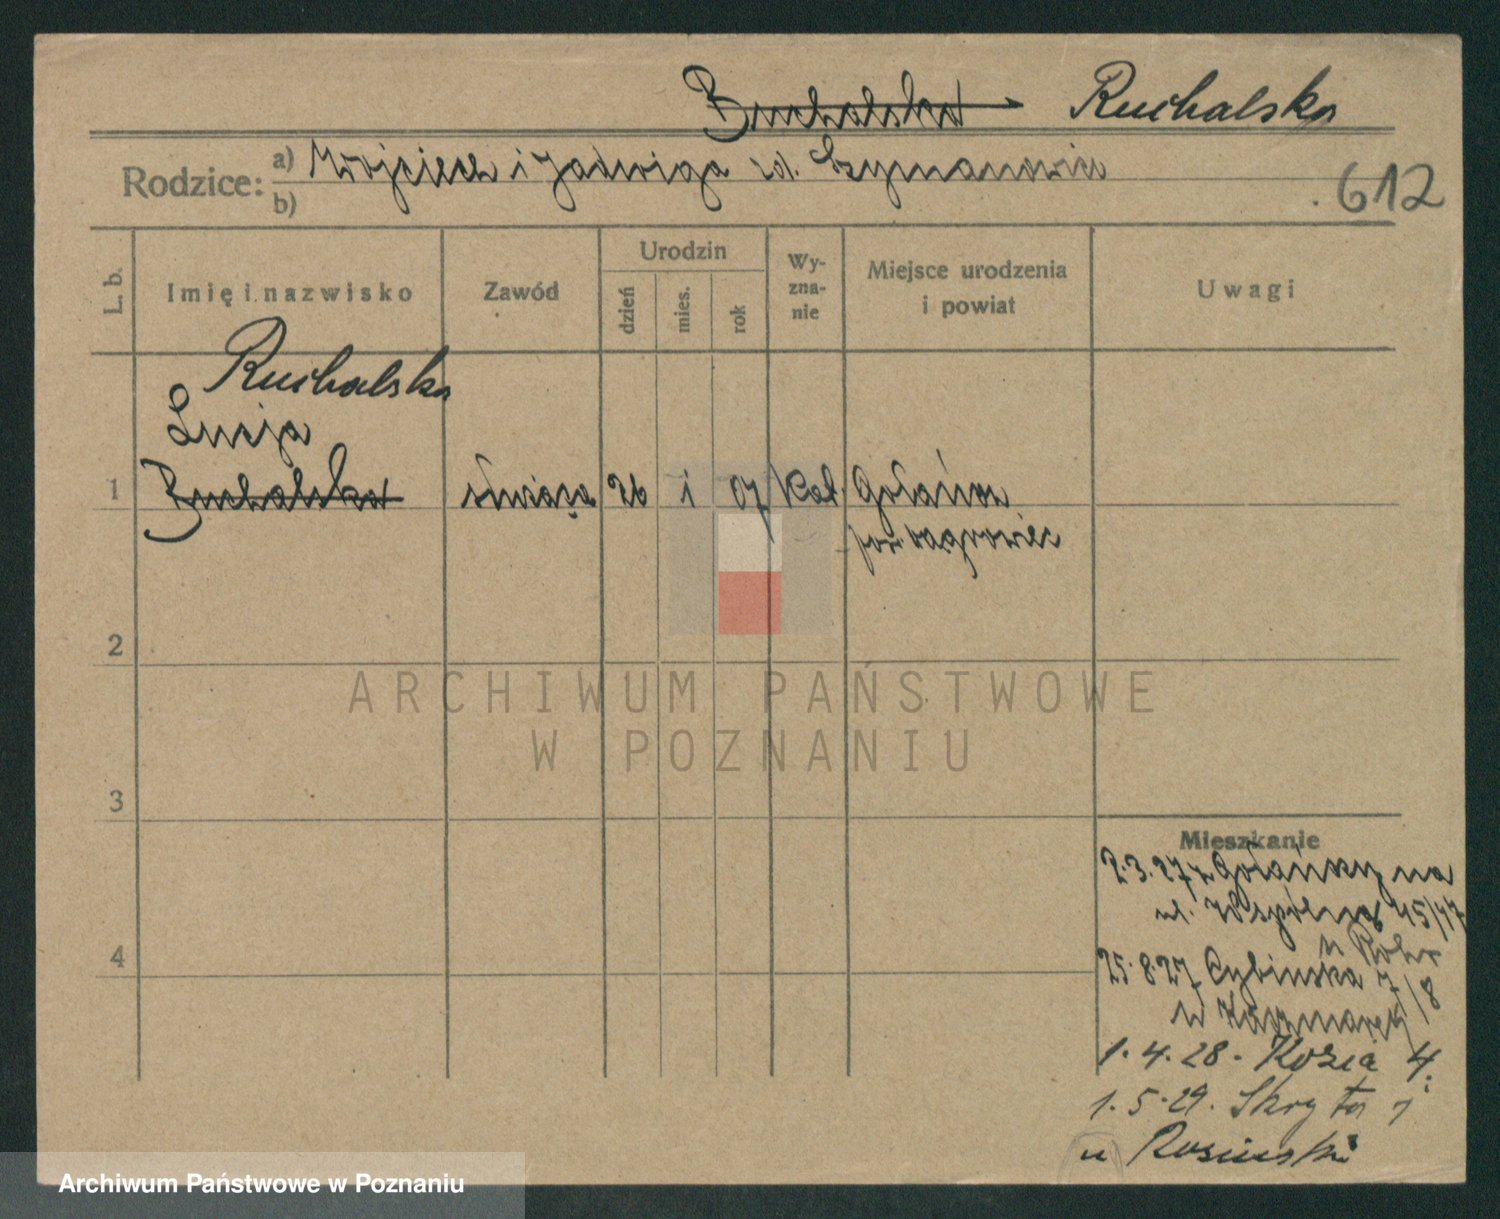 Buchalska Ruchalska
Rodzice: a) Wojciech i Jadwiga zd. Szymanowicz
b)
612
L. b. Imię i nazwisko Zawód Urodzin dzień mies. rok Wy-zna-nie Miejsce urodzenia i powiat Uwagi
Ruchalska
Lucja
1 Buchalska służąca 26 i 07 Kat. Gołańcz
pow wągrowiec
2
3
4
Mieszkanie
2.3.27 z Gołańczy na
ul. Wspólną 45/47
u Rohr
25.8.27 Cybinska 7/8
u Kaczmarek
1.4.28. Kozia 4
1.5.29. Skryta
u Rosinski
ARCHIWUM PAŃSTWOWE
W POZNANIU
Archiwum Państwowe w Poznaniu